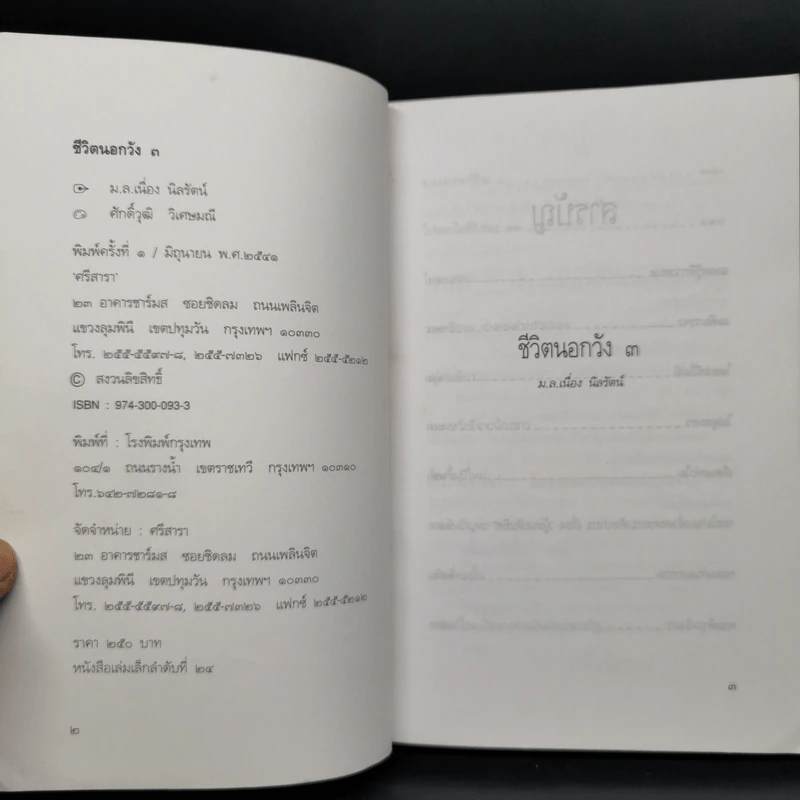 ชีวิตนอกวัง ๓
ม.ล.เนื่อง นิลรัตน์
ศักดิ์วุฒิ วิเศษมณี
พิมพ์ครั้งที่ ๑ / มิถุนายน พ.ศ.๒๕๔๑
'ศรีสารา'
๒๓ อาคารชาร์มส ซอยชิดลม ถนนเพลินจิต
แขวงลุมพินี เขตปทุมวัน กรุงเทพฯ ๑๐๓๓๐
โทร. ๒๕๕-๕๕๙๗-๘, ๒๕๕-๗๓๒๖ แฟกซ์ ๒๕๕-๕๒๑๒
© สงวนลิขสิทธิ์
ISBN : 974-300-093-3
พิมพ์ที่ : โรงพิมพ์กรุงเทพ
๑๐๔/๑ ถนนรางน้ำ เขตราชเทวี กรุงเทพฯ ๑๐๓๑๐
โทร.๖๔๒-๗๒๘๑-๘
จัดจำหน่าย : ศรีสารา
๒๓ อาคารชาร์มส ซอยชิดลม ถนนเพลินจิต
แขวงลุมพินี เขตปทุมวัน กรุงเทพฯ ๑๐๓๓๐
โทร. ๒๕๕-๕๕๙๗-๘, ๒๕๕-๗๓๒๖ แฟกซ์ ๒๕๕-๕๒๑๒
ราคา ๒๕๐ บาท
หนังสือเล่มเล็กลำดับที่ ๒๔
๒
สารบัญ
ชีวิตนอกวัง ๓
ม.ล.เนื่อง นิลรัตน์
๓